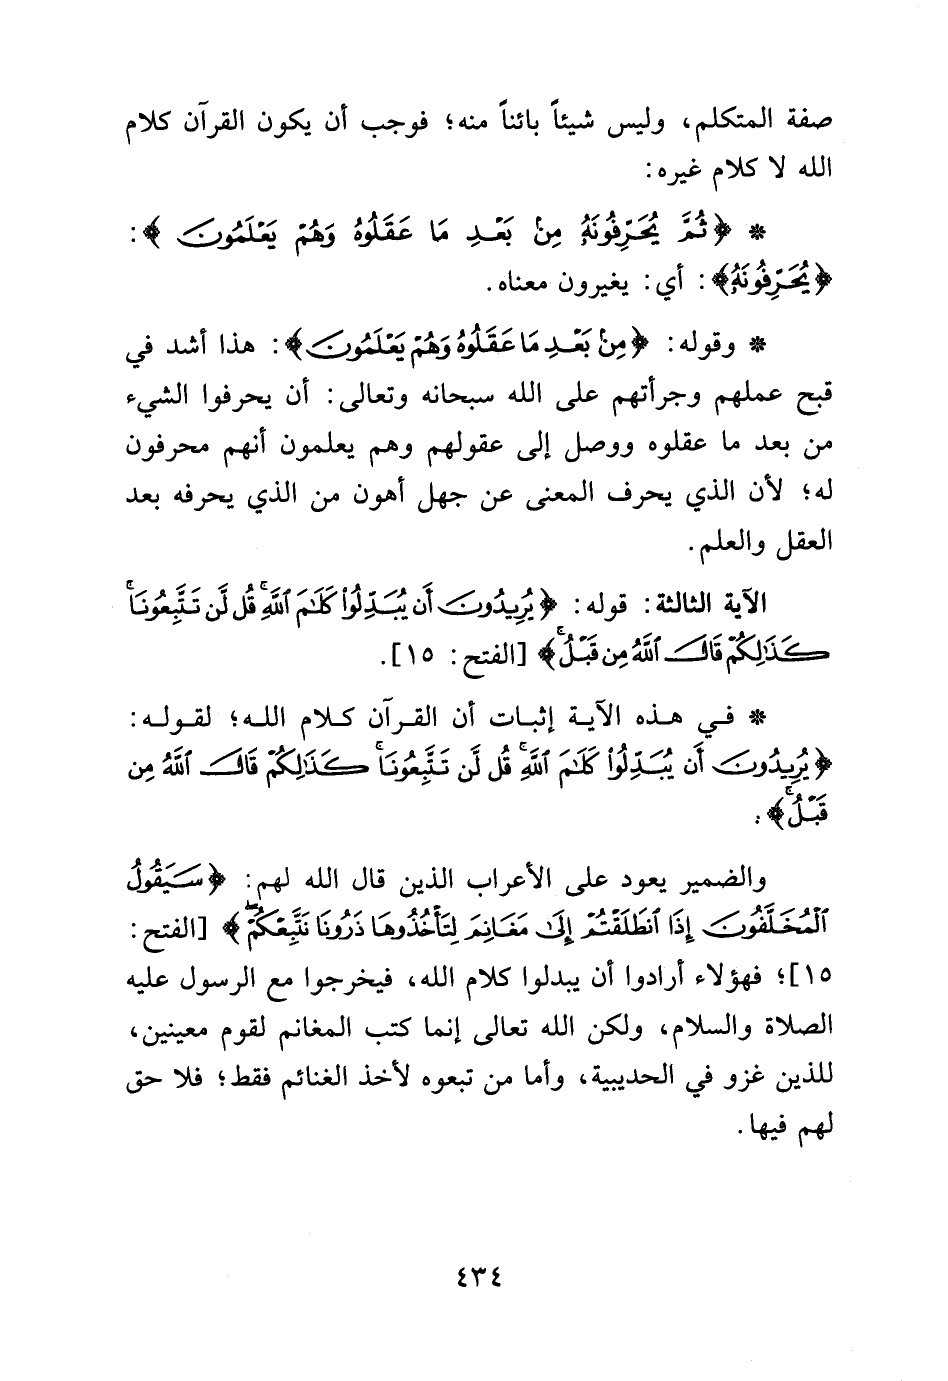 صفة المتكلم، وليس شيئاً بائناً منه؛ فوجب أن يكون القرآن كلام
الله لا كلام غيره:
* ﴿ثُمَّ يُحَرِّفُونَهُ مِنْ بَعْدِ مَا عَقَلُوهُ وَهُمْ يَعْلَمُونَ﴾:
﴿يُحَرِّفُونَهُ﴾: أي: يغيرون معناه.
* وقوله: ﴿مِنْ بَعْدِ مَا عَقَلُوهُ وَهُمْ يَعْلَمُونَ﴾: هذا أشد في
قبح عملهم وجرأتهم على الله سبحانه وتعالى: أن يحرفوا الشيء
من بعد ما عقلوه ووصل إلى عقولهم وهم يعلمون أنهم محرفون
له؛ لأن الذي يحرف المعنى عن جهل أهون من الذي يحرفه بعد
العقل والعلم.
الآية الثالثة: قوله: ﴿يُرِيدُونَ أَن يُبَدِّلُوا۟ كَلَٰمَ ٱللَّهِۚ قُل لَّن تَتَّبِعُونَاۚ
كَذَٰلِكُمْ قَالَ ٱللَّهُ مِن قَبْلُۚ﴾ [الفتح: ١٥].
* في هذه الآية إثبات أن القرآن كلام الله؛ لقوله:
﴿يُرِيدُونَ أَن يُبَدِّلُوا۟ كَلَٰمَ ٱللَّهِۚ قُل لَّن تَتَّبِعُونَاۚ كَذَٰلِكُمْ قَالَ ٱللَّهُ مِن
قَبْلُۚ﴾:
والضمير يعود على الأعراب الذين قال الله لهم: ﴿سَيَقُولُ
ٱلْمُخَلَّفُونَ إِذَا ٱنطَلَقْتُمْ إِلَىٰ مَغَانِمَ لِتَأْخُذُوهَا ذَرُونَا نَتَّبِعْكُمْۖ﴾ [الفتح:
١٥]؛ فهؤلاء أرادوا أن يبدلوا كلام الله، فيخرجوا مع الرسول عليه
الصلاة والسلام، ولكن الله تعالى إنما كتب المغانم لقوم معينين،
للذين غزو في الحديبية، وأما من تبعوه لأخذ الغنائم فقط؛ فلا حق
لهم فيها.
٤٣٤